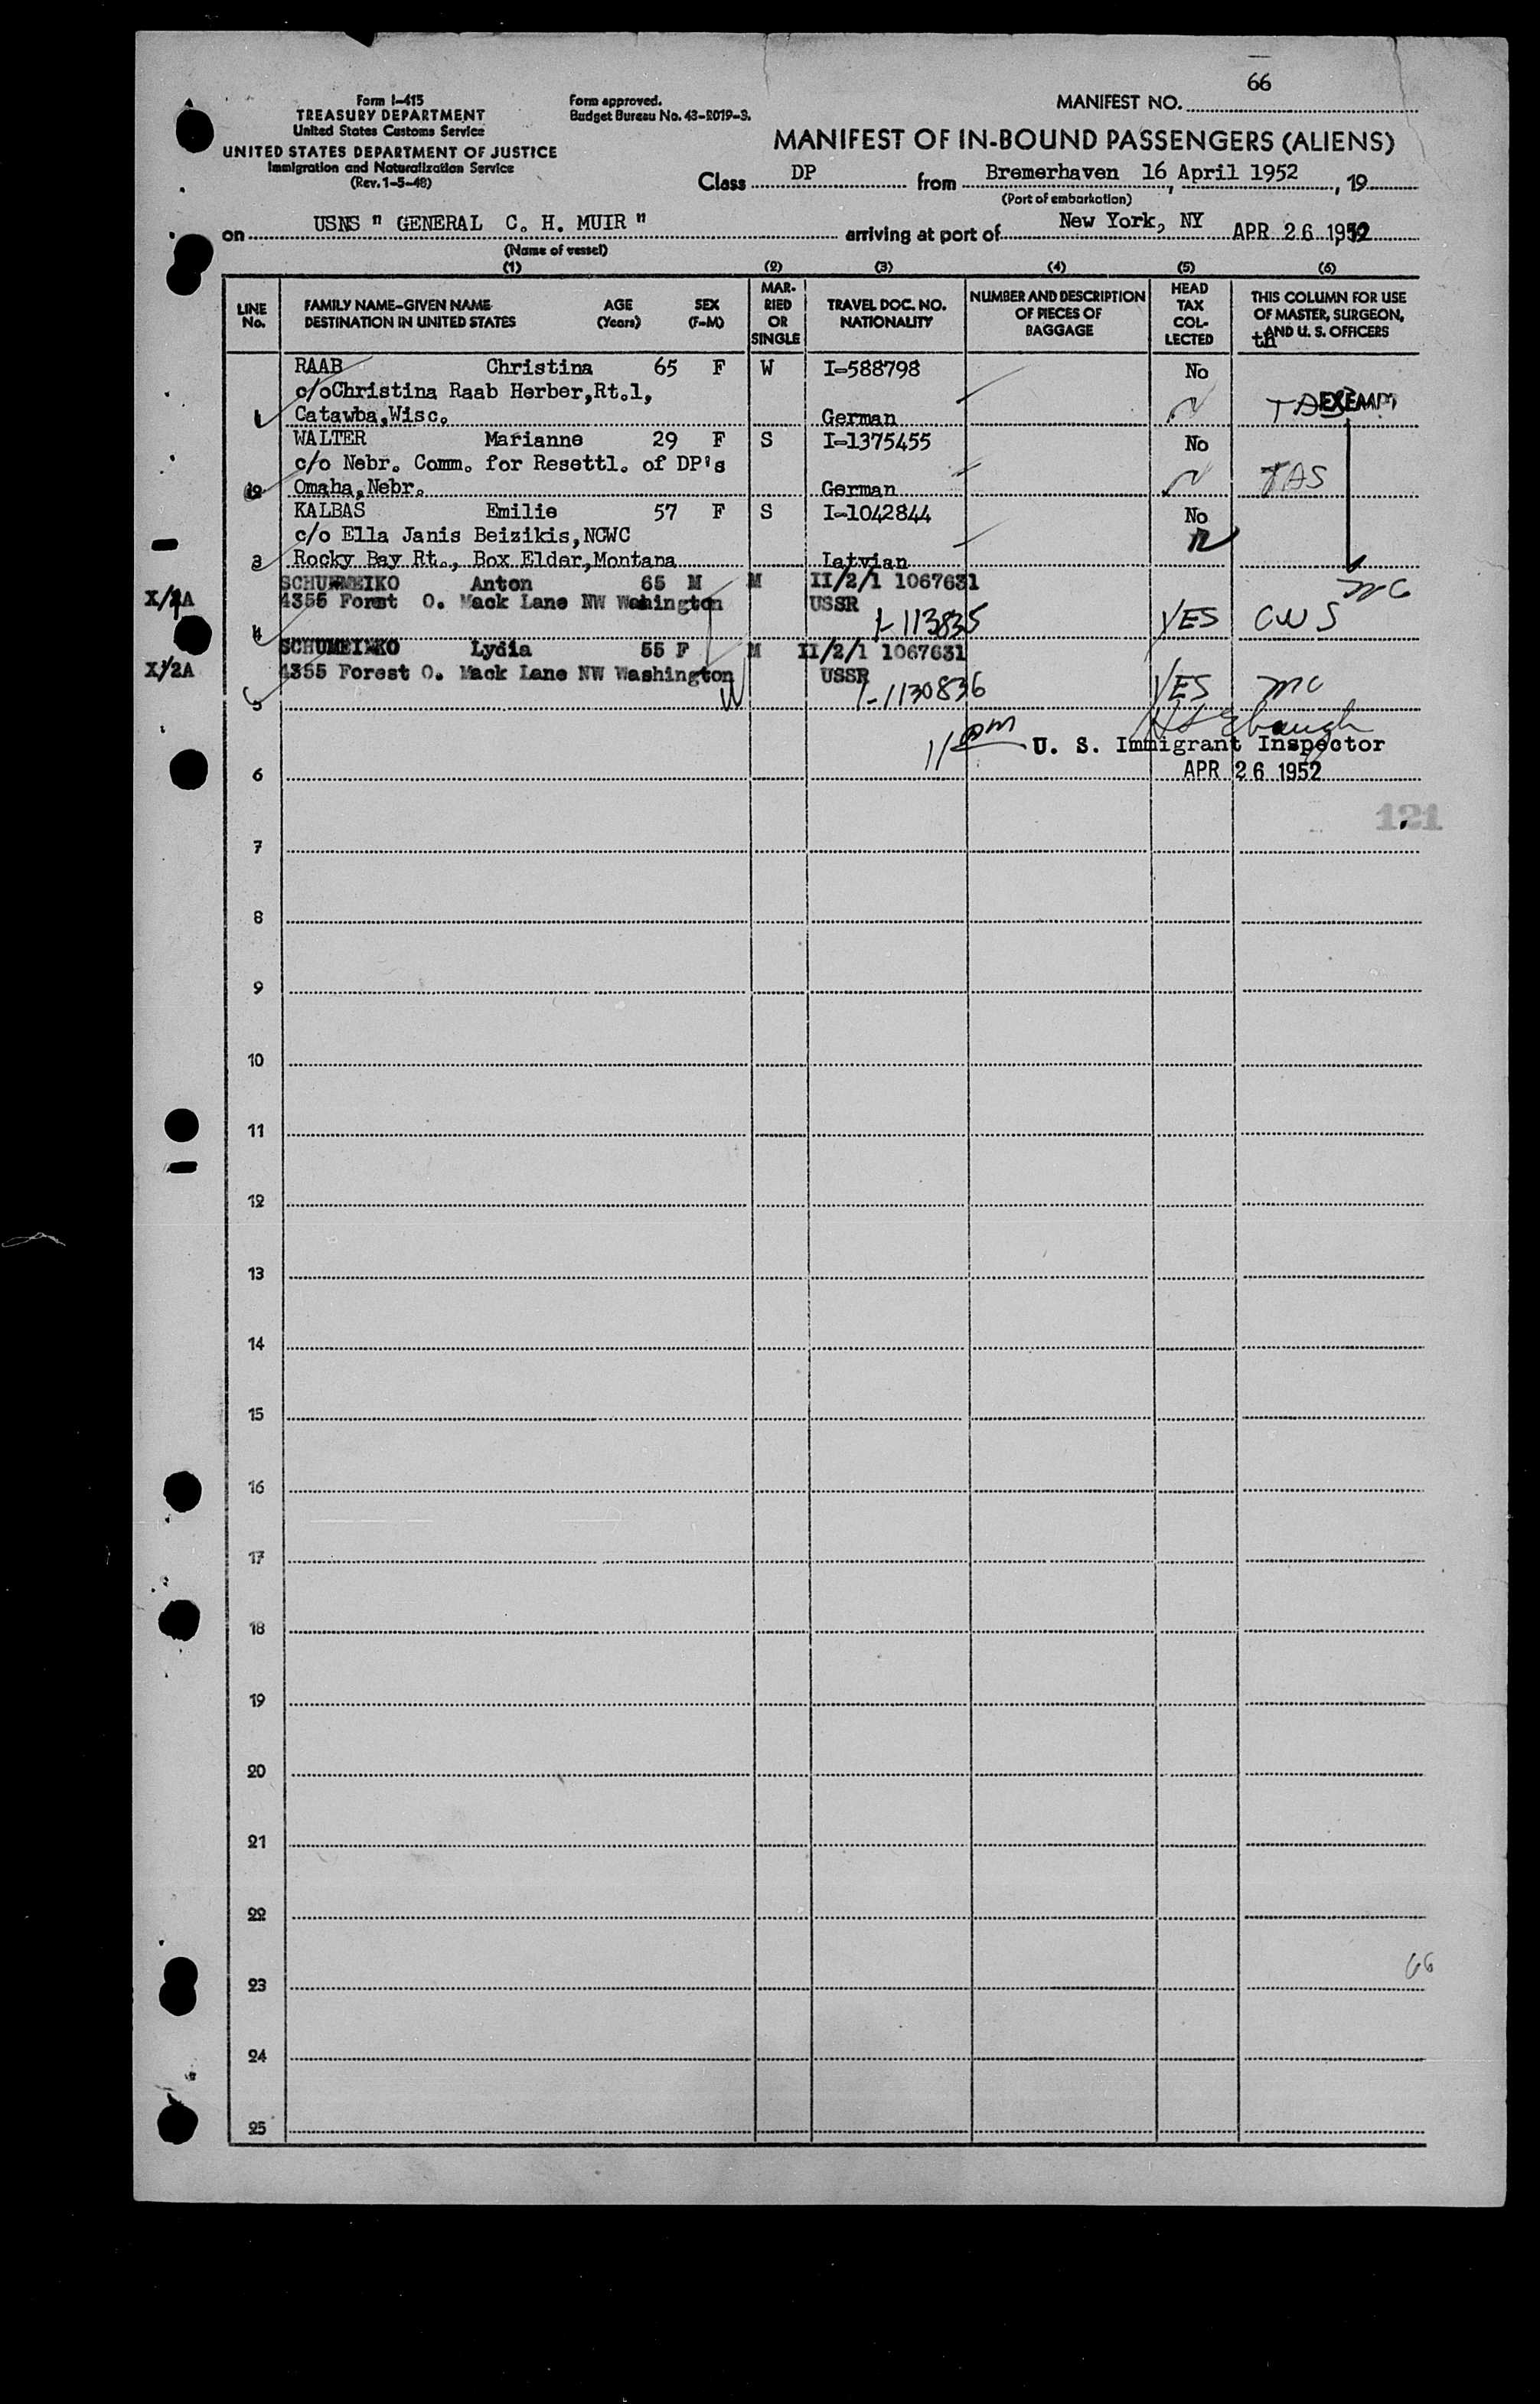 66
Form I-415
TREASURY DEPARTMENT
United States Customs Service
UNITED STATES DEPARTMENT OF JUSTICE
Immigration and Naturalization Service
(Rev. 1-5-48)
Form approved.
Budget Bureau No. 43-R019-3.
MANIFEST NO.
MANIFEST OF IN-BOUND PASSENGERS (ALIENS)
Class DP from Bremerhaven 16 , April 1952 , 19
(Port of embarkation)
on USNS " GENERAL C. H. MUIR " arriving at port of New York, NY APR 26 1952
(Name of vessel)
(1) (2) (3) (4) (5) (6)
LINE No. FAMILY NAME-GIVEN NAME DESTINATION IN UNITED STATES AGE (Years) SEX (F-M) MAR-RIED OR SINGLE TRAVEL DOC. NO. NATIONALITY NUMBER AND DESCRIPTION OF PIECES OF BAGGAGE HEAD TAX COL-LECTED THIS COLUMN FOR USE OF MASTER, SURGEON, AND U. S. OFFICERS
RAAB Christina 65 F W I-588798 No
c/oChristina Raab Herber,Rt.1,
1 Catawba,Wisc. German EXEMPT
WALTER Marianne 29 F S I-1375455 No
c/o Nebr. Comm. for Resettl. of DP's
2 Omaha,Nebr. German TAS
KALBAS Emilie 57 F S I-1042844 No
c/o Ella Janis Beizikis,NCWC
3 Rocky Bay Rt., Box Elder,Montana Latvian
SCHUMEIKO Anton 65 M M II/2/1 1067631
4355 Forest O. Mack Lane NW Washington USSR
4 1-113835 YES CWS
SCHUMEIKO Lydia 55 F M II/2/1 1067631
X/2A 4355 Forest O. Mack Lane NW Washington USSR
5 1-1130836 YES mc
U. S. Immigrant Inspector
6 APR 26 1952
121
7
8
9
10
11
12
13
14
15
16
17
18
19
20
21
22
23
66
24
25